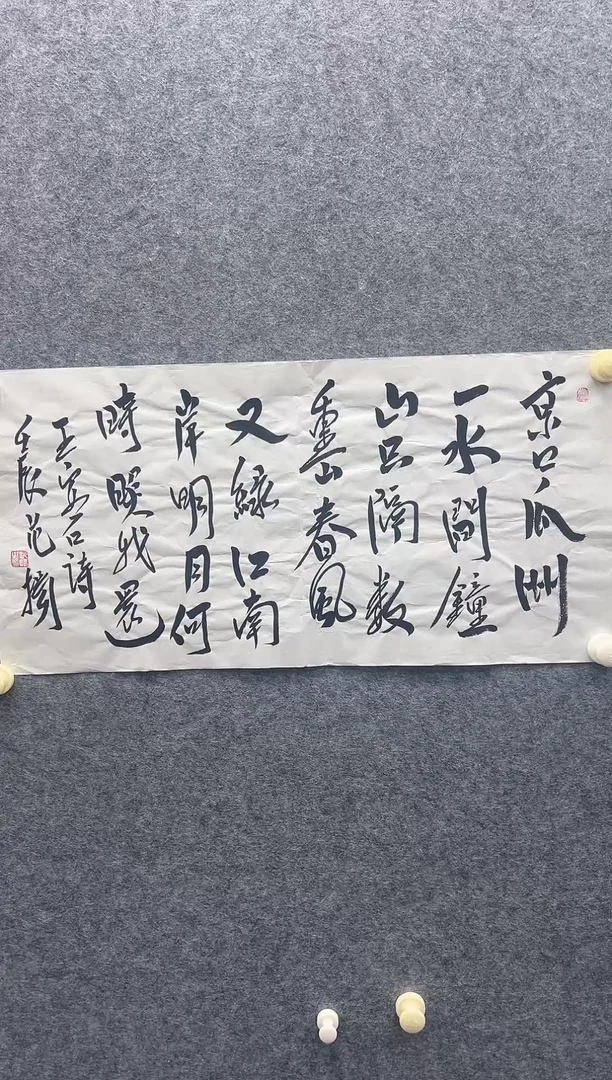 京口瓜洲
一水間鐘
山只隔数
重山春風
又緑江南
岸明月何
時照我還
王安石詩
壬辰范